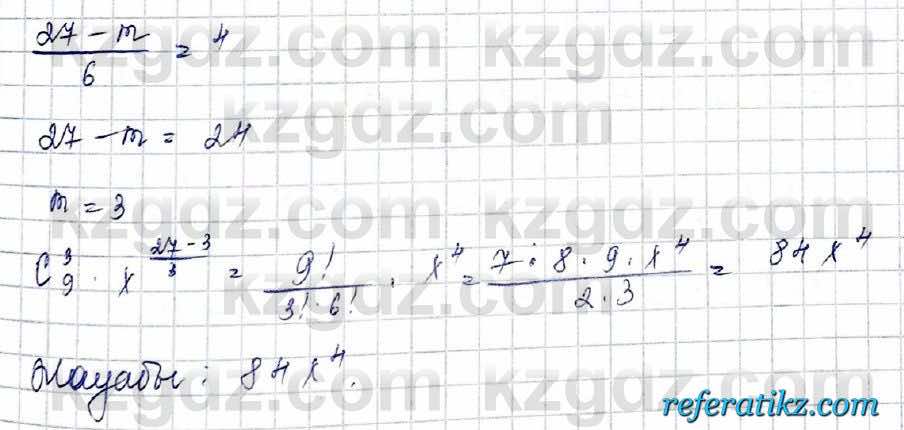 (27 - m)/6 = 4
27 - m = 24
m = 3
C₉³ · x^((27 - 3)/3) = 9!/(3! · 6!) · x⁴ = (7 · 8 · 9 · x⁴)/(2 · 3) = 84x⁴
Жауабы: 84x⁴.
kzgdz.com kzgdz.com
kzgdz.com
kzgdz.com kzgdz.com
kzgdz.com
kzgdz.com kzgdz.com
referatikz.com